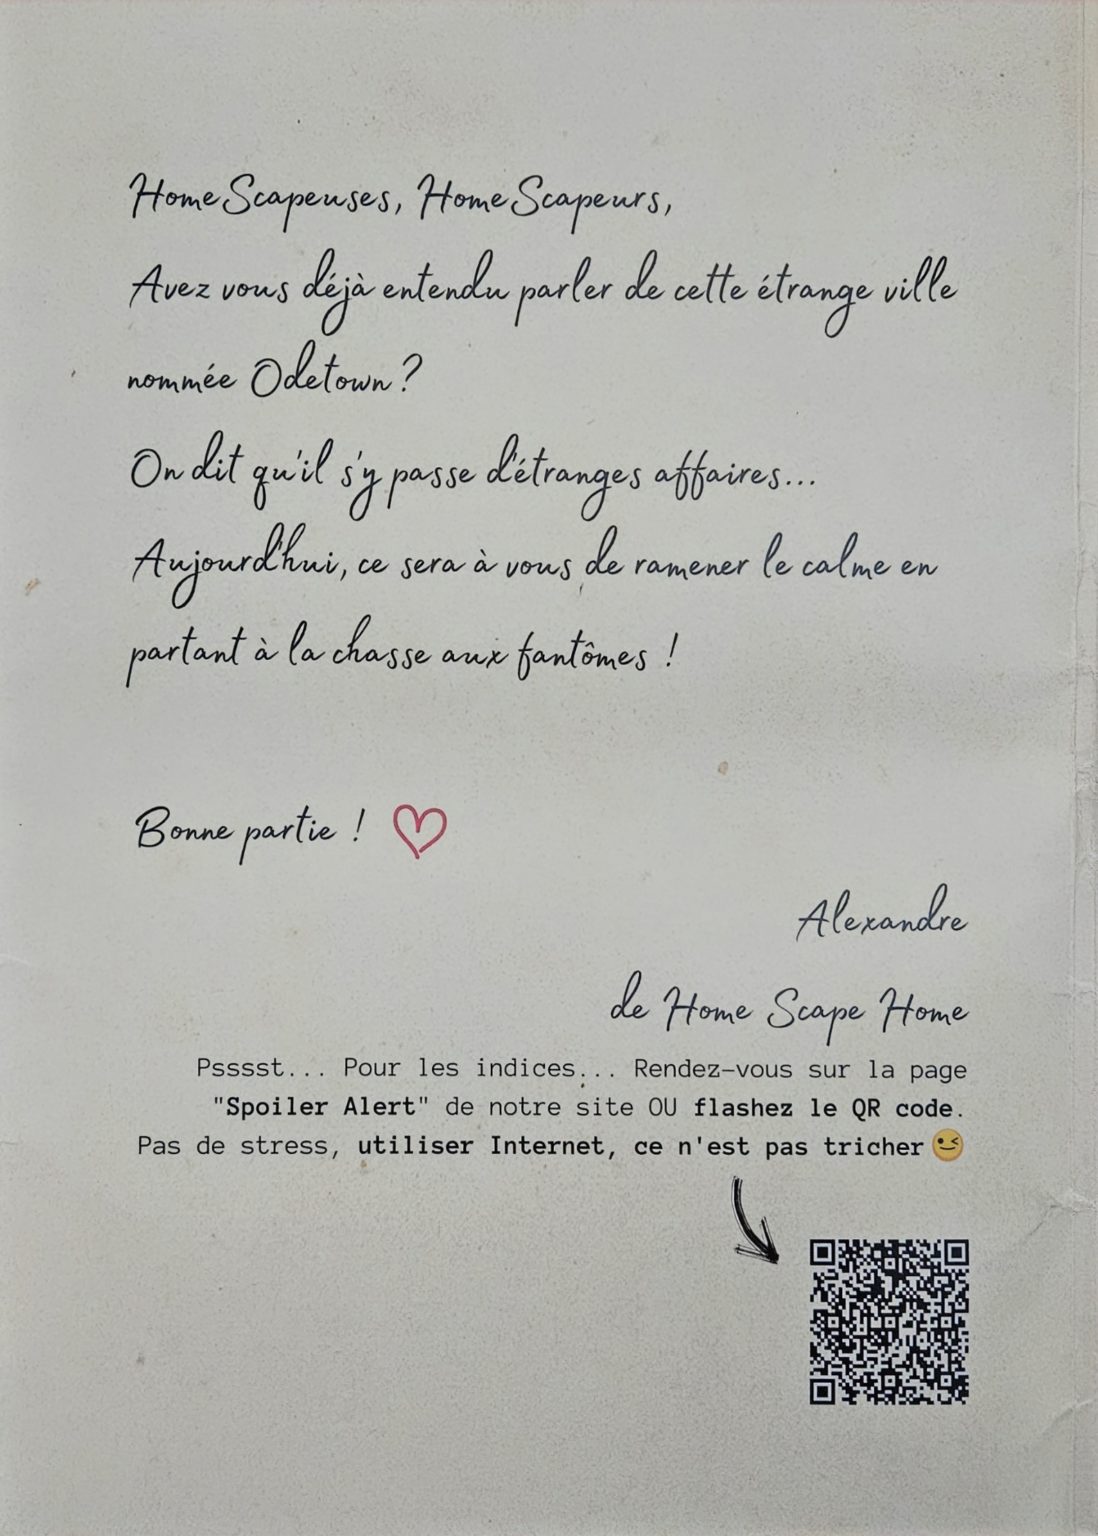 HomeScapeuses, HomeScapeurs,
Avez vous déjà entendu parler de cette étrange ville
nommée Odetown ?
On dit qu'il s'y passe d'étranges affaires...
Aujourd'hui, ce sera à vous de ramener le calme en
partant à la chasse aux fantômes !
Bonne partie !
Alexandre
de Home Scape Home
Psssst... Pour les indices... Rendez-vous sur la page
"Spoiler Alert" de notre site OU flashez le QR code.
Pas de stress, utiliser Internet, ce n'est pas tricher 😉